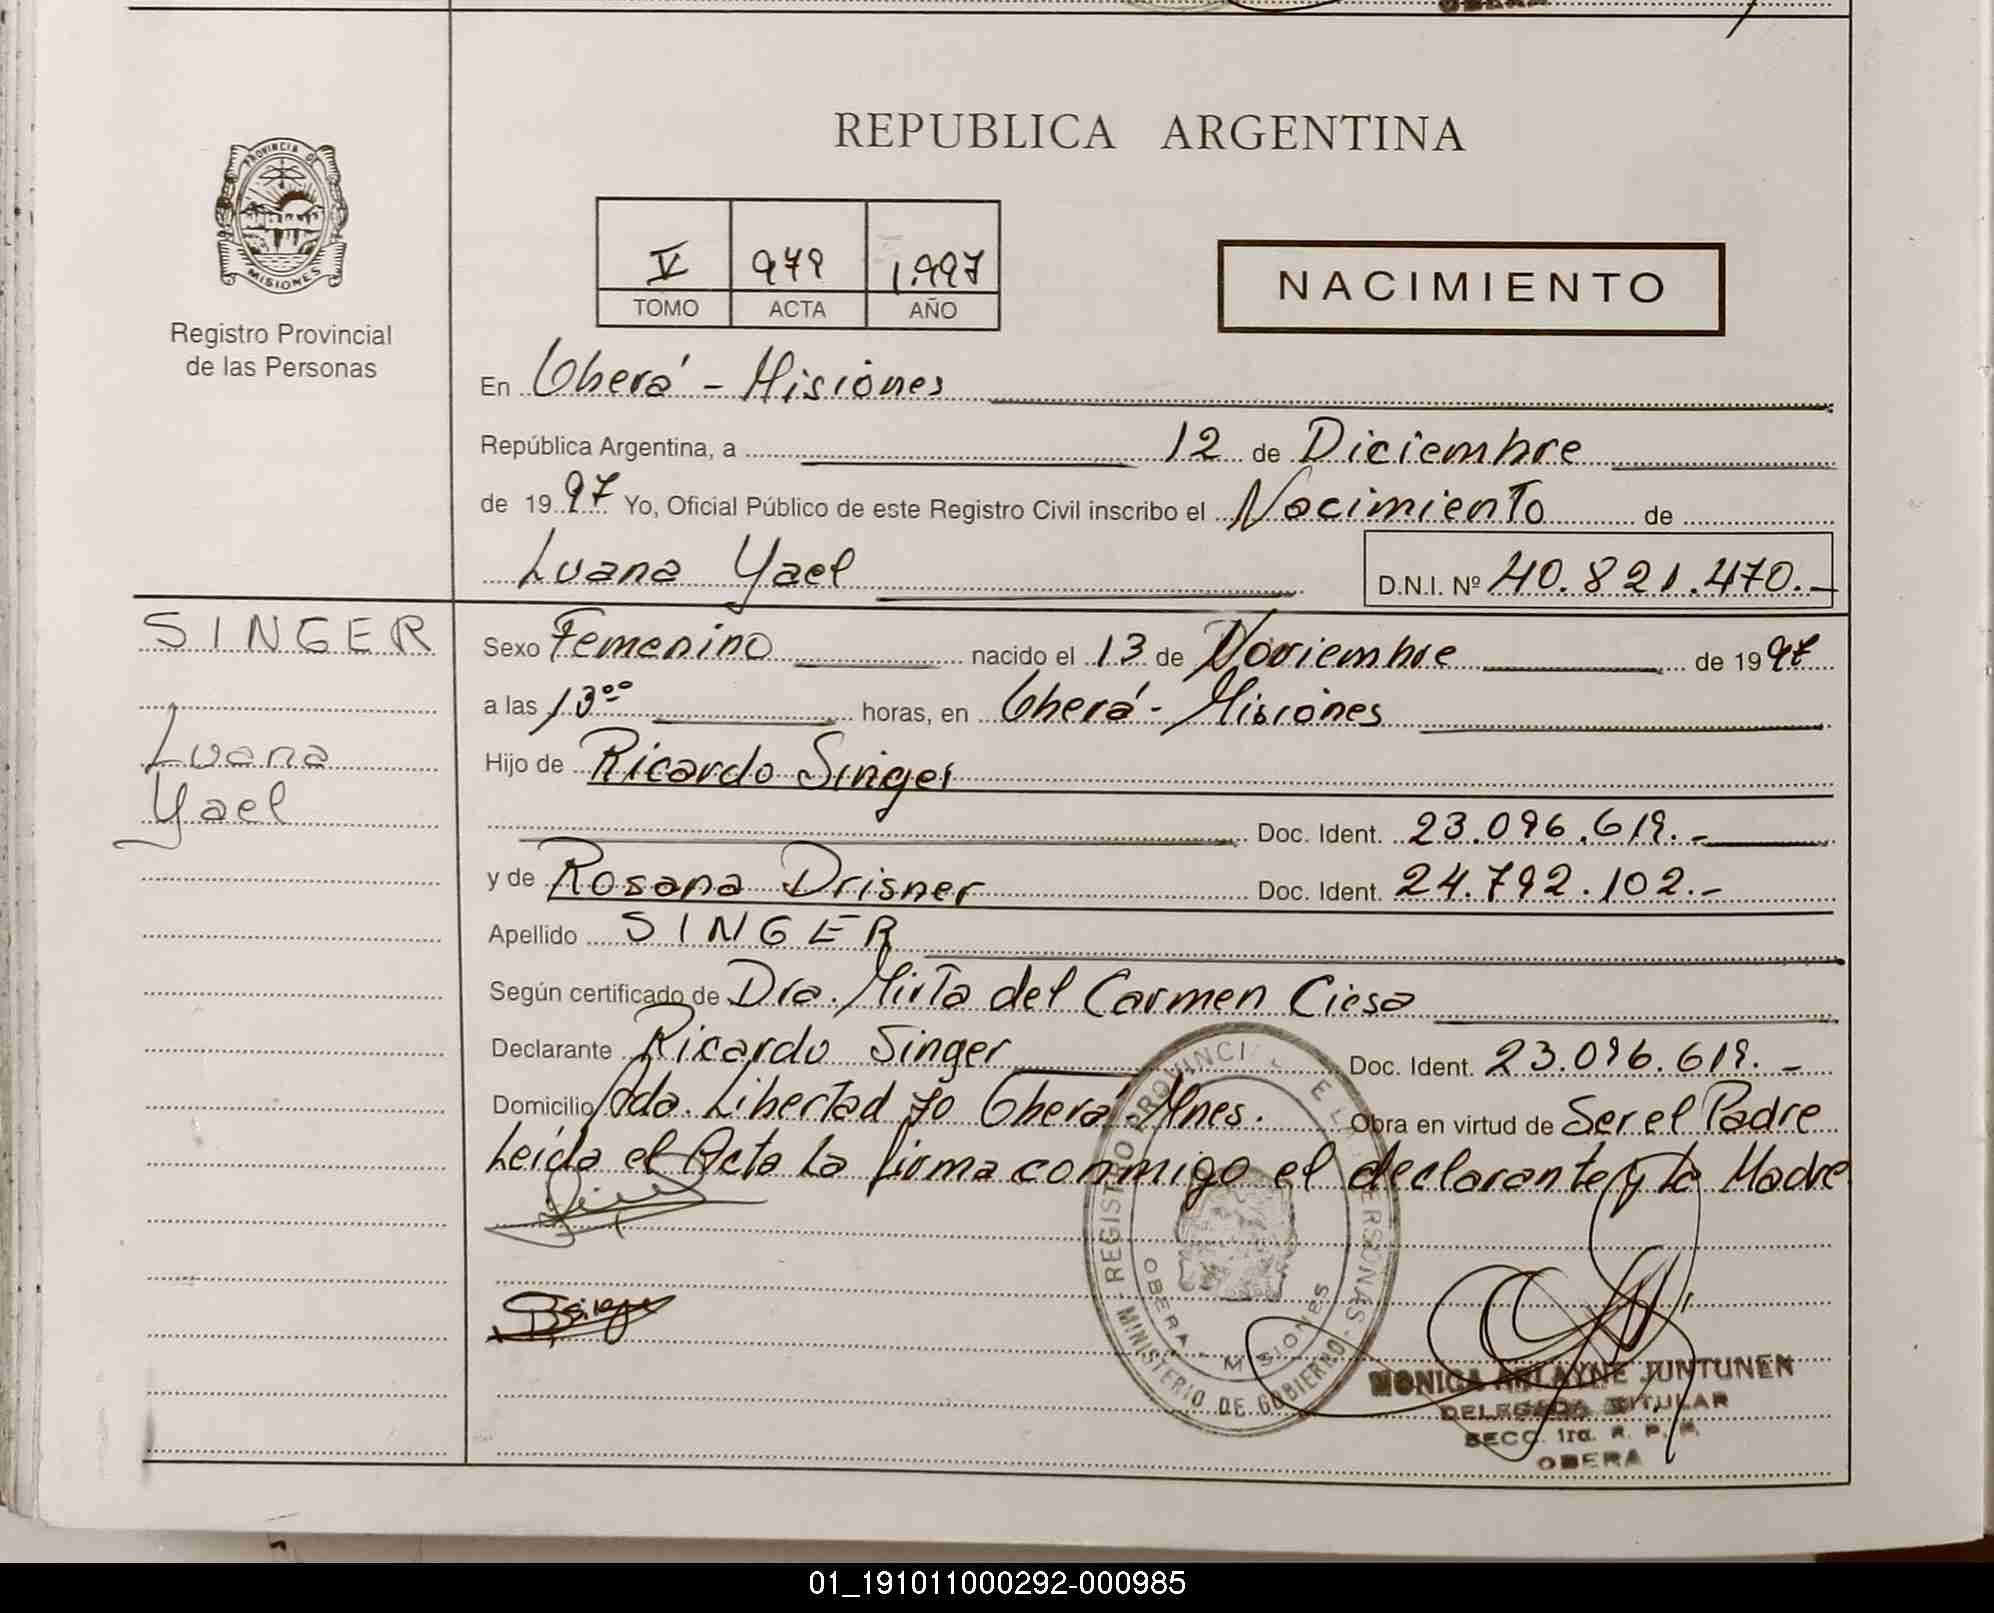 REPUBLICA ARGENTINA
PROVINCIA DE
MISIONES
Registro Provincial
de las Personas
V 979 1.997
TOMO ACTA AÑO
NACIMIENTO
En Oberá - Misiones
República Argentina, a 12 de Diciembre
de 1997 Yo, Oficial Público de este Registro Civil inscribo el Nacimiento de
Luana Yael D.N.I. Nº 40.821.470.-
SINGER
Luana
Yael
Sexo Femenino nacido el 13 de Noviembre de 1997
a las 13⁰⁰ horas, en Oberá - Misiones
Hijo de Ricardo Singer
Doc. Ident. 23.096.619.-
y de Rosana Drisner Doc. Ident. 24.792.102.-
Apellido SINGER
Según certificado de Dra. Mirta del Carmen Ciesa
Declarante Ricardo Singer Doc. Ident. 23.096.619.-
Domicilio Avda. Libertad 70 Oberá Mnes. Obra en virtud de Ser el Padre
Leída el Acta la firma conmigo el declarante y la Madre
REGISTRO PROVINCIAL DE LAS PERSONAS - MINISTERIO DE GOBIERNO -
OBERA - MISIONES
MONICA JUNTUNEN
DELEGADA TITULAR
SECC. 1ra. R. P. P.
OBERA
01_191011000292-000985